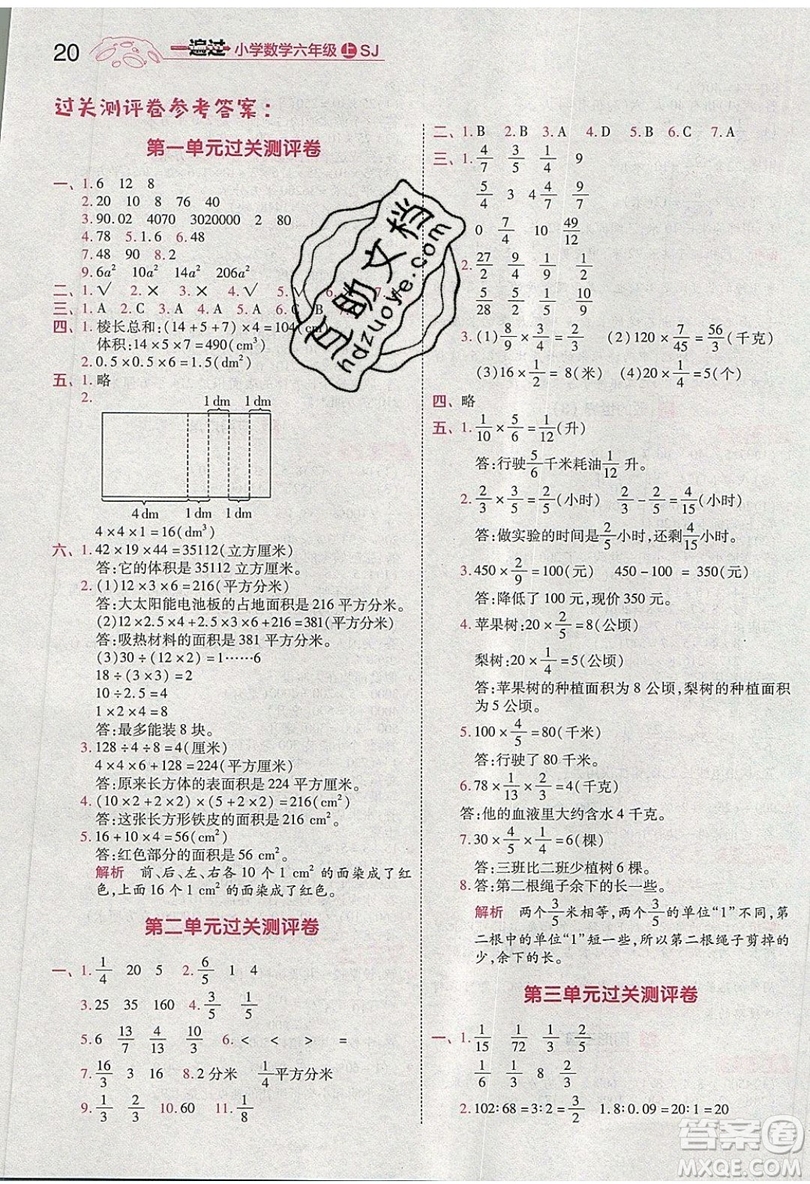 20 一遍过 小学数学六年级 上 SJ
过关测评卷参考答案:
第一单元过关测评卷
一、1. 6 12 8
2. 20 10 8 76 40
3. 90.02 4070 3020000 2 280
4. 78 5. 1.6 6. 48
7. 48 90 8. 2
9. 6a² 10a² 14a² 206a²
二、1. √ 2. × 3. × 4. √ 5. √
三、1. A 2. C 3. C 4. A 5. A 6. A
四、1. 棱长总和:(14+5+7)×4=104(cm)
体积:14×5×7=490(cm³)
2. 0.5×0.5×6=1.5(dm²)
五、1. 略
2.
1 dm 1 dm
4 dm 1 dm 1 dm
4×4×1=16(dm³)
六、1. 42×19×44=35112(立方厘米)
答:它的体积是 35112 立方厘米。
2. (1)12×3×6=216(平方分米)
答:大太阳能电池板的占地面积是 216 平方分米。
(2)12×2.5×3+12×2.5×6+216=381(平方分米)
答:吸热材料的面积是 381 平方分米。
(3)30÷(12×2)=1……6
18÷(3×3)=2
1×2×4=8
答:最多能装 8 块。
3. 128÷4÷8=4(厘米)
4×4×6+4×8×4=224(平方厘米)
答:原来长方体的表面积是 224 平方厘米。
4. (10+2×2)×(5+2×2)=216(cm²)
答:这张长方形铁皮的面积是 216 cm²。
5. 16+10×4=56(cm²)
答:红色部分的面积是 56 cm²。
解析 前、后、左、右各 10 个 1 cm² 的面染成了红
色,上面 16 个 1 cm² 的面染成了红色。
第二单元过关测评卷
一、1. 1/4 20 5 2. 6/5 1 4
3. 25 35 160 4. 3/5 3/5
5. 6 13/7 4/13 6. < < > =
7. 16/3 3 16 8. 2 分米 1/4 平方分米
9. 1/3 2/3 10. 60 11. 1/2
二、1. B 2. B 3. A 4. D 5. B 6. B 7. A
三、1. 4/7 3/5 1/4 9
5/4 3 4 4/7 1/5
0 7/4 10 49/12
2. 27/10 9/5 4/5 1/2
5/28 27/10 1/5 3/5
3. (1) 8/9×3/4=2/3(米) (2)120×7/45=56/3(千克)
(3)16×1/2=8(米) (4)20×1/4=5(个)
四、略
五、1. 1/10×5/6=1/12(升)
答:行驶5/6千米耗油1/12升。
2. 2/3×3/5=2/5(小时) 2/3-2/5=4/15(小时)
答:做实验的时间是2/5小时,还剩4/15小时。
3. 450×2/9=100(元) 450-100=350(元)
答:降低了 100 元,现价 350 元。
4. 苹果树:20×2/5=8(公顷)
梨树:20×1/4=5(公顷)
答:苹果树的种植面积为 8 公顷,梨树的种植面积
为 5 公顷。
5. 100×4/5=80(千米)
答:行驶了 80 千米。
6. 78×1/13×2/3=4(千克)
答:他的血液里大约含水 4 千克。
7. 30×4/5×1/4=6(棵)
答:三班比二班少植树 6 棵。
8. 答:第二根绳子余下的长一些。
解析 两个3/5米相等,两个3/5的单位“1”不同,第
二根中的单位“1”短一些,所以第二根绳子剪掉的
少,余下的长。
第三单元过关测评卷
一、1. 1/15 1/72 13/3 2/9
1/6 1/3 8 2/3
2. 102∶68=3∶2=3/2 1.8∶0.09=20∶1=20
互助文档
ydzuoye.com
答案圈
MXQE.COM